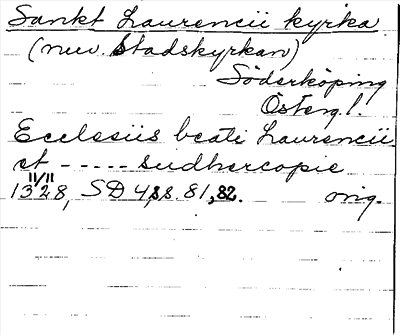 Sankt Laurencii kyrka
(nuv. Stadskyrkan)
Söderköping
Österg. l.
Ecclesiis beati Laurencii
et ----- sudhercopie
11/11
1328, SD 4, s. 81, 82. orig.